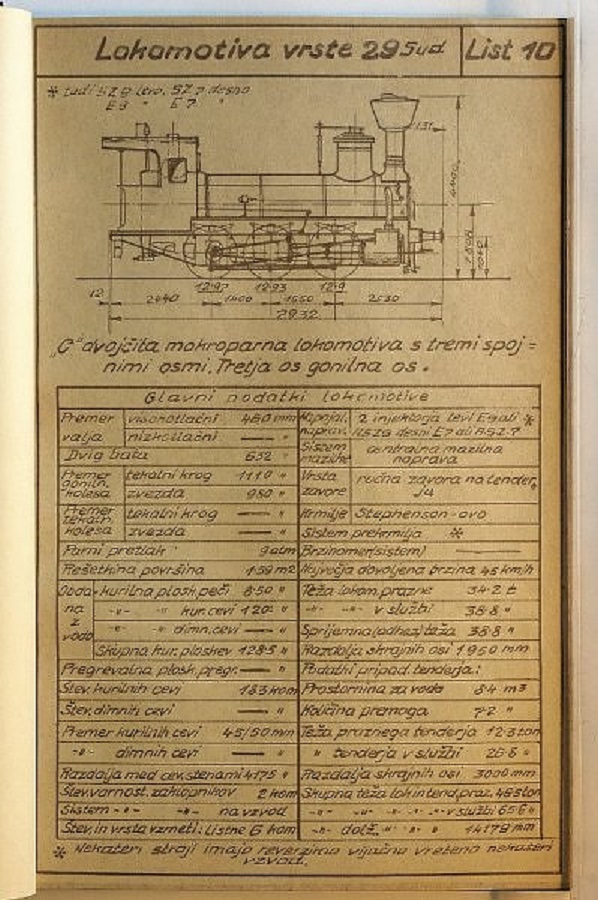 Lokomotiva vrste 29 Sud List 10
* tudi SZ 9 levo, SZ 7 desno
E9 " E7 "
12·97 12·93 12·9
2440 1400 1550 2530
"C" dvojčita mokroparna lokomotiva s tremi spoj=
nimi osmi. Tretja os gonilna os.
Glavni podatki lokomotive
Premer valja visokotlačni 460 mm
nizkotlačni — "
Dvig bata 632 "
Premer goniln. kolesa tekalni krog 1110 "
zvezda 980 "
Premer tekaln. kolesa tekalni krog — "
zvezda — "
Parni pretlak 9 atm
Rešetkina površina 1·59 m2
Vodo- kurilna plosk. peči 8·50 "
na "- kur. cevi "
z "- dimn. cevi — "
vodo Skupna kur. ploskev 128·5 "
Pregrevalna plosk. pregr. — "
Štev. kurilnih cevi 183 kom
Štev. dimnih cevi — "
Premer kurilnih cevi 45/50 mm
-"- dimnih cevi — "
Razdalja med cev. stenami 4175 "
Štev. varnost. zaklopnikov 2 kom
Sistem -"- -"- na vzvod
Štev. in vrsta vzmeti: Listne 6 kom
Napajal. naprav. 2 injektorja levi E9 ali *
desni E7 ali
Sistem mazilne centralna mazilna
naprava
Vrsta zavore ročna zavora na tender,
Krmilje Stephenson-ovo
Sistem prekrmilja *
Brzinomer (sistem) —
Največja dovoljena brzina 45 km/h
Teža lokom. prazne 34·2 t
-"- -"- v službi 38·8 "
Sprijemna (adhez) teža 38·8 "
Razdalja skrajnih osi 1950 mm
Podatki pripad. tenderja:
Prostornina za vodo 8·4 m3
Količina premoga 7·2 "
Teža praznega tenderja 12·3 ton
" tenderja v službi 26·8 "
Razdalja skrajnih osi 3000 mm
Skupna teža lok in tend. praz. 46·5 ton
-"- -"- v službi 65·6 "
-"- dolž. -"- 14179 mm
* Nekateri stroji imajo reverzirno vijačno vreteno nekateri
vzvod.